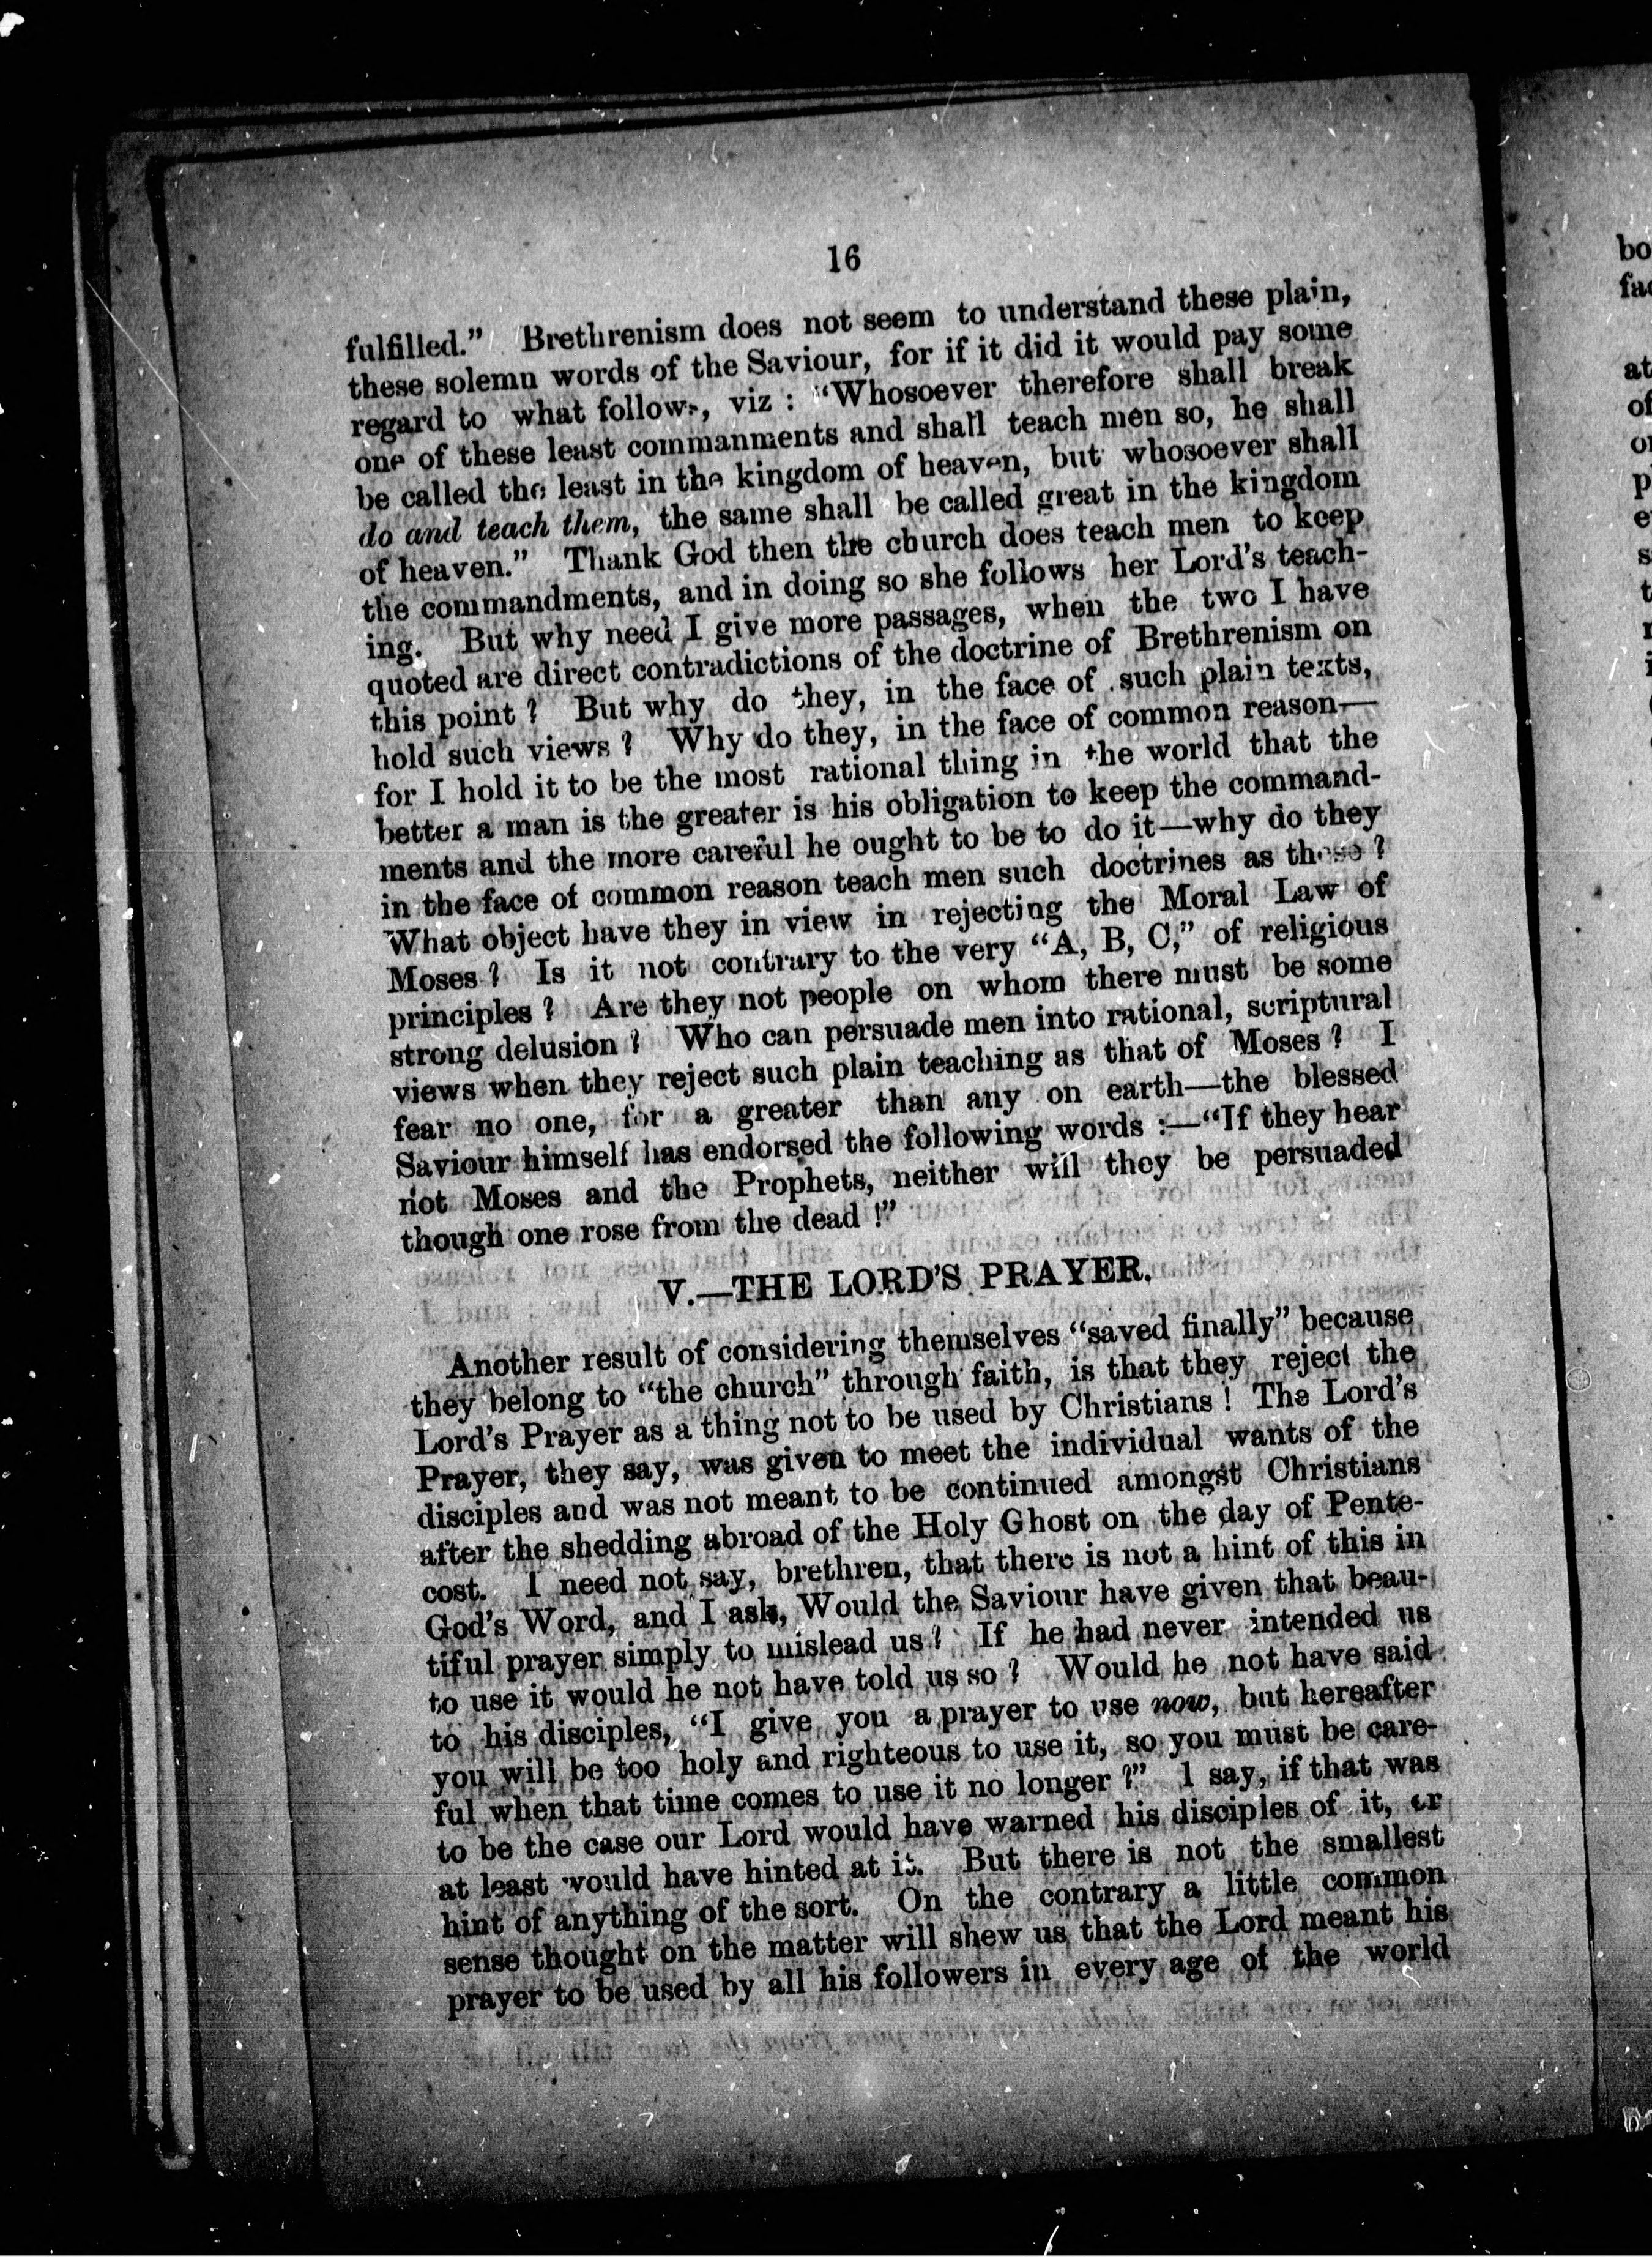 16
fulfilled." Brethrenism does not seem to understand these plain,
these solemn words of the Saviour, for if it did it would pay some
regard to what follows, viz : "Whosoever therefore shall break
one of these least commanments and shall teach men so, he shall
be called the least in the kingdom of heaven, but whosoever shall
do and teach them, the same shall be called great in the kingdom
of heaven." Thank God then the church does teach men to keep
the commandments, and in doing so she follows her Lord's teach-
ing. But why need I give more passages, when the two I have
quoted are direct contradictions of the doctrine of Brethrenism on
this point ? But why do they, in the face of such plain texts,
hold such views ? Why do they, in the face of common reason—
for I hold it to be the most rational thing in the world that the
better a man is the greater is his obligation to keep the command-
ments and the more careful he ought to be to do it—why do they
in the face of common reason teach men such doctrines as these ?
What object have they in view in rejecting the Moral Law of
Moses ? Is it not contrary to the very "A, B, C," of religious
principles ? Are they not people on whom there must be some
strong delusion ? Who can persuade men into rational, scriptural
views when they reject such plain teaching as that of Moses ? I
fear no one, for a greater than any on earth—the blessed
Saviour himself has endorsed the following words :—"If they hear
not Moses and the Prophets, neither will they be persuaded
though one rose from the dead !"
V.—THE LORD'S PRAYER.
Another result of considering themselves "saved finally" because
they belong to "the church" through faith, is that they reject the
Lord's Prayer as a thing not to be used by Christians ! The Lord's
Prayer, they say, was given to meet the individual wants of the
disciples and was not meant to be continued amongst Christians
after the shedding abroad of the Holy Ghost on the day of Pente-
cost. I need not say, brethren, that there is not a hint of this in
God's Word, and I ask, Would the Saviour have given that beau-
tiful prayer simply to mislead us ? If he had never intended us
to use it would he not have told us so ? Would he not have said
to his disciples, "I give you a prayer to use now, but hereafter
you will be too holy and righteous to use it, so you must be care-
ful when that time comes to use it no longer ?" I say, if that was
to be the case our Lord would have warned his disciples of it, or
at least would have hinted at it. But there is not the smallest
hint of anything of the sort. On the contrary a little common
sense thought on the matter will shew us that the Lord meant his
prayer to be used by all his followers in every age of the world